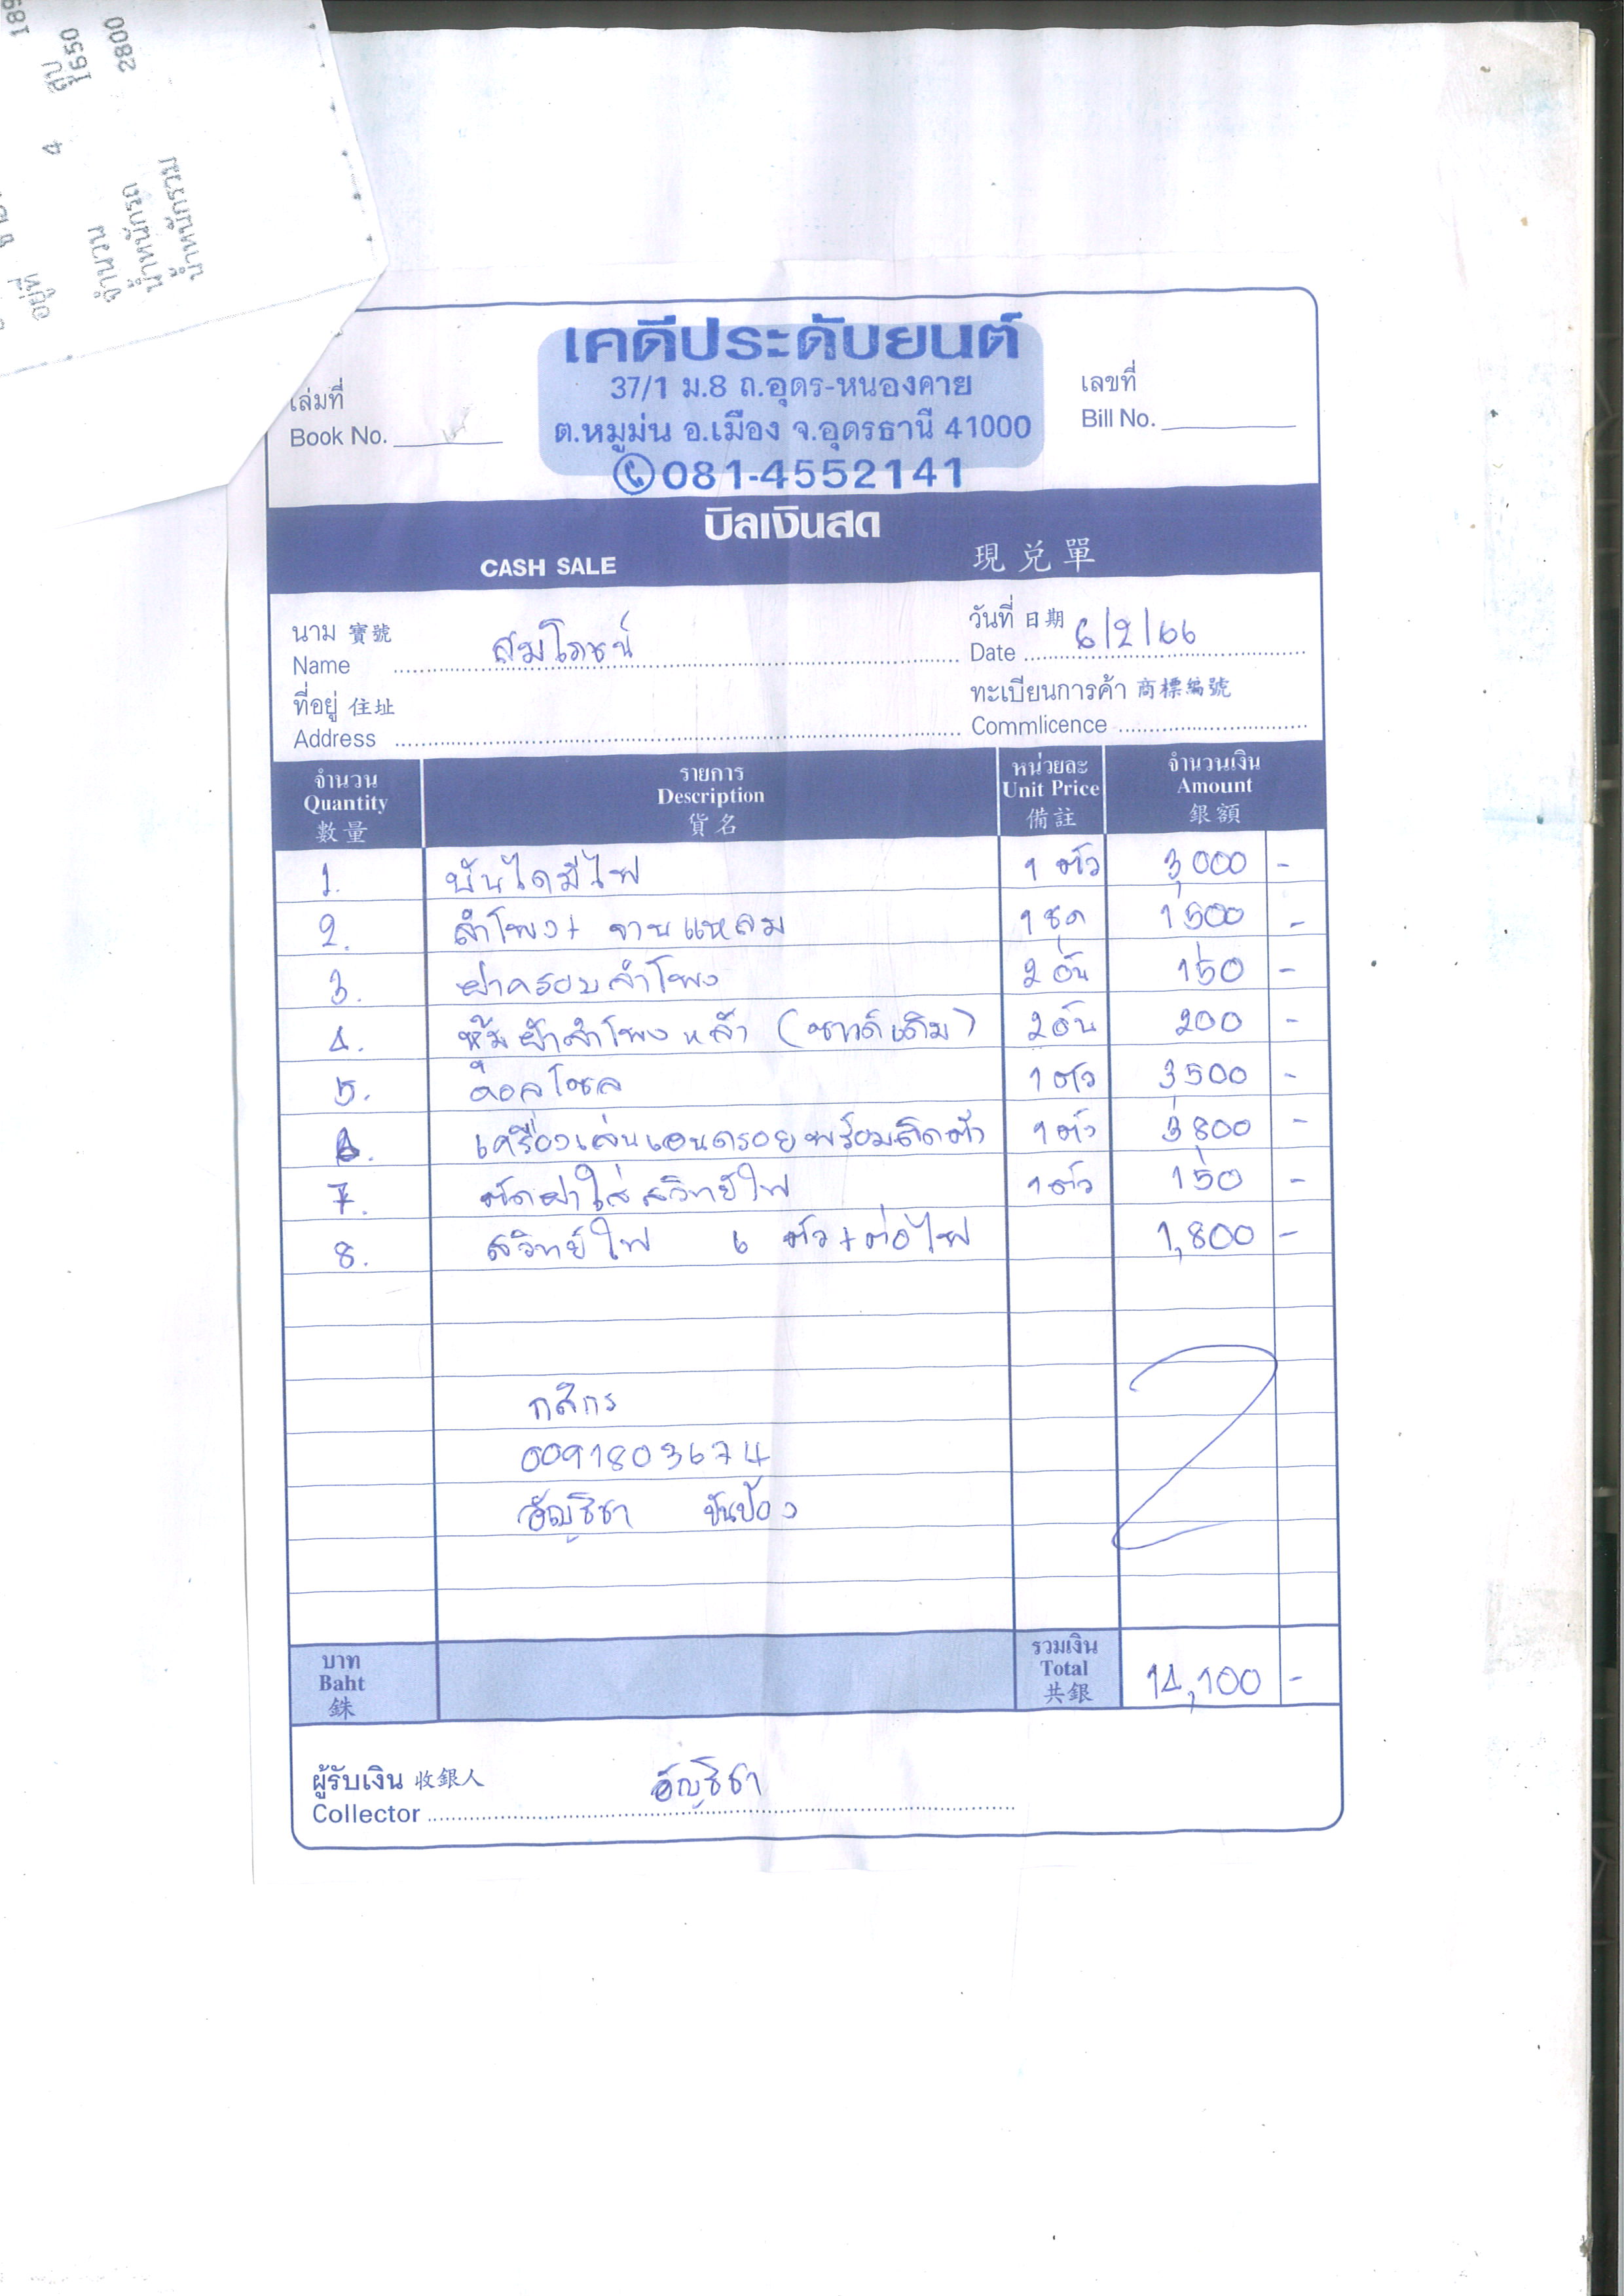 189
ลูป
1650
2800
4
อยู่ที่
จำนวน
น้ำหนักรถ
น้ำหนักรวม
เคดีประดับยนต์
37/1 ม.8 ถ.อุดร-หนองคาย
ต.หมูม่น อ.เมือง จ.อุดรธานี 41000
081-4552141
เล่มที่
Book No.
เลขที่
Bill No.
บิลเงินสด
CASH SALE 現兌單
นาม 寶號
Name สมโภชน์
วันที่ 日期
Date 6/2/66
ที่อยู่ 住址
Address
ทะเบียนการค้า 商標編號
Commlicence
จำนวน รายการ หน่วยละ จำนวนเงิน
Quantity Description Unit Price Amount
數量 貨名 備註 銀額
1. บันไดมีไฟ 1 ตัว 3,000 -
2. ลำโพง + จานแหลม 1 ชุด 1,500 -
3. ฝาครอบลำโพง 2 อัน 150 -
4. หุ้มผ้าลำโพงหลัง (ซาวด์เดิม) 2 อัน 200 -
5. คอลโซล 1 ตัว 3500 -
6. เครื่องเล่นแอนดรอยพร้อมติดตั้ง 1 ตัว 3,800 -
7. ตัดฝาใส่สวิทย์ไฟ 1 ตัว 150 -
8. สวิทย์ไฟ 6 ตัว + ต่อไฟ 1,800 -
กสิกร
0091803674
อัญชิชา ขันป้อง
บาท
Baht
銖
รวมเงิน
Total
共銀
14,100 -
ผู้รับเงิน 收銀人
Collector อัญชิชา